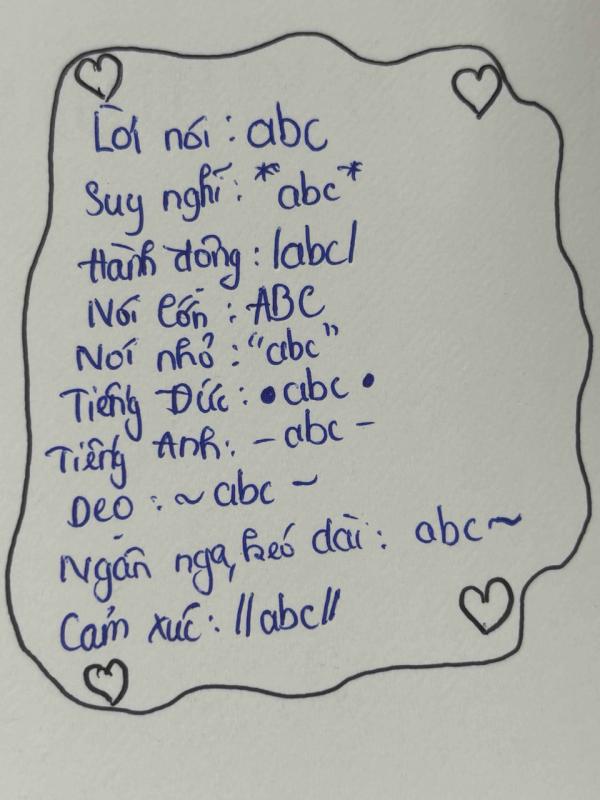 Lời nói : abc
Suy nghĩ : *abc*
Hành động : /abc/
Nói lớn : ABC
Nói nhỏ : "abc"
Tiếng Đức : •abc•
Tiếng Anh : -abc-
Dẹo : ~abc~
Ngân nga, kéo dài : abc~
Cảm xúc : //abc//